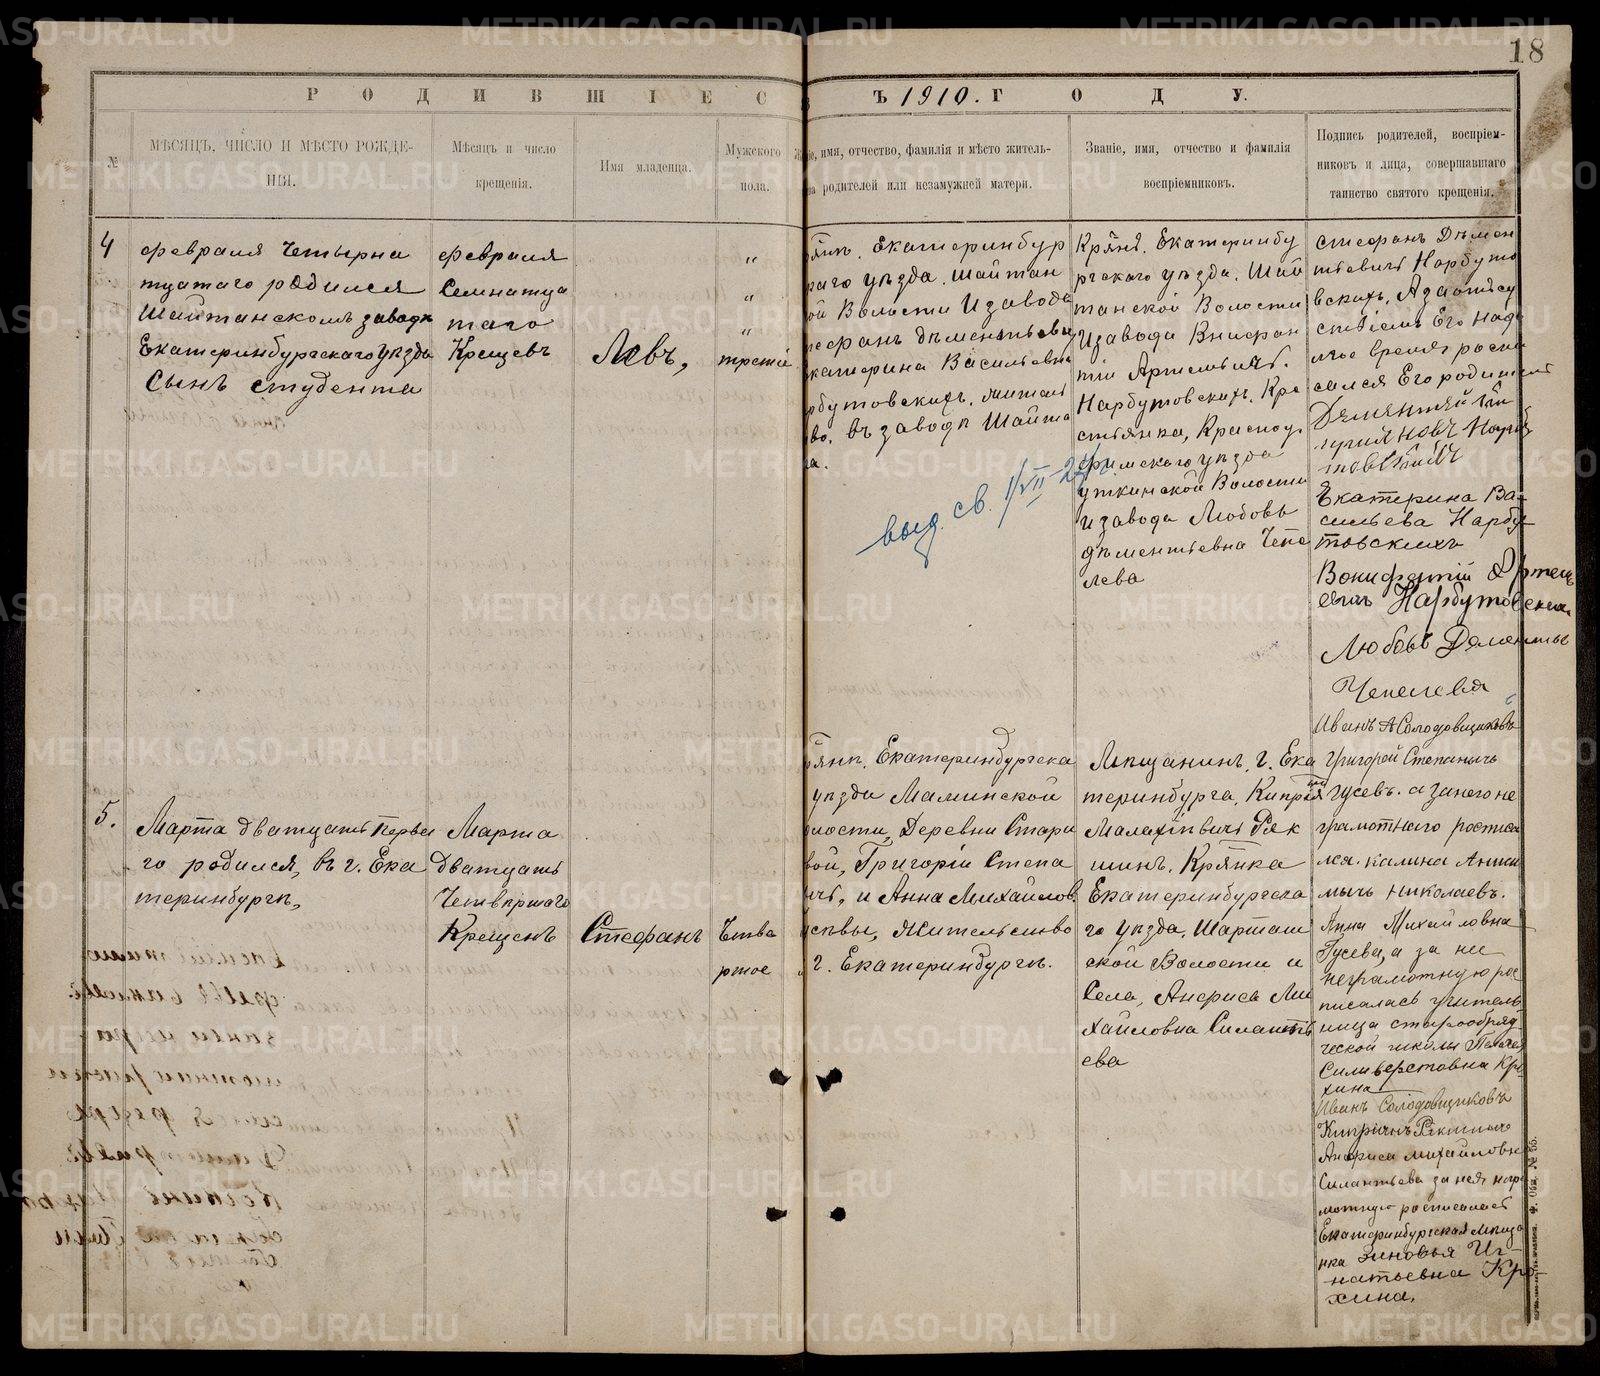 18
РОДИВШІЕС Ъ 1910. ГОДУ.
№
МѢСЯЦЪ, ЧИСЛО И МѢСТО РОЖДЕ-
НІЯ.
Мѣсяцъ и число
крещенія.
Имя младенца.
Мужского
пола.
имя, отчество, фамилія и мѣсто житель-
родителей или незамужней матери.
Званіе, имя, отчество и фамилія
воспріемниковъ.
Подпись родителей, воспріем-
никовъ и лица, совершавшаго
таинство святого крещенія.
4
февраля Четырна
тцатаго родился
Шайтанскомъ заводѣ
Екатеринбургскаго уѣзда
Сынъ студента
февраля
Семнатца
таго
Крещевъ
Левъ,
третій
Екатеринбур
уѣзда. Шайтан
Волости И завода
дѣментьевы
Васильевна
въ заводѣ Шайта
Крян. Екатеринбу
ргскаго уѣзда. Шай
танской Волости
И завода
Нарбутовскихъ. Кре
стьянка, Красноу
фимскаго уѣзда
уткинской Волости
И завода Любовь
дѣментьевна Чепе
лева
стефанъ Дѣмен
тьевичъ Нарбуто
вскихъ. А за отсу
ствіемъ Его
время роспи
сался Его родитель
Екатерина Ва-
сильева Нарбу-
товскихъ
Вонифатій Артем
евичъ Нарбутовских
Любовь Дементьев
Чепелева
Иванъ А Солодовщиковъ
выд. св. 1/VII-24 г.
5.
Марта дватцать Перва
го родился, въ г. Ека
теринбургѣ,
Марта
дватцать
Четвѣртаго
Крещенъ
Стефанъ
Четве
ртое
Екатеринбургска
уѣзда Маминской
Деревни Стари
Григорій Степа
и Анна Михайлов.
Жительство
г. Екатеринбургѣ.
Мѣщанинъ, г. Ека
теринбурга, Кипріян
Малахіевичъ Рѣк
шинъ. Крянка
Екатеринбургска
го уѣзда. Шарташ
ской Волости и
Села, Анфиса Ми
хайловна Силанть
ева
Григорей Степанычъ
Гусевъ. а за него не
грамотнаго росписа
лся. калина Антип
мычъ Николаевъ.
Анна Михайловна
Гусева, а за не
неграмотную рос
писалась учитель
ница старообряд
ческой школы Пелагея
Силиверстовна Кро
хина
Иванъ Солодовщиковъ
Анфиса Михайловна
Силантьева за нея негра
мотную расписалась
Екатеринбургская мѣща
нка Зиновья Иг-
натьевна Кро-
хина.